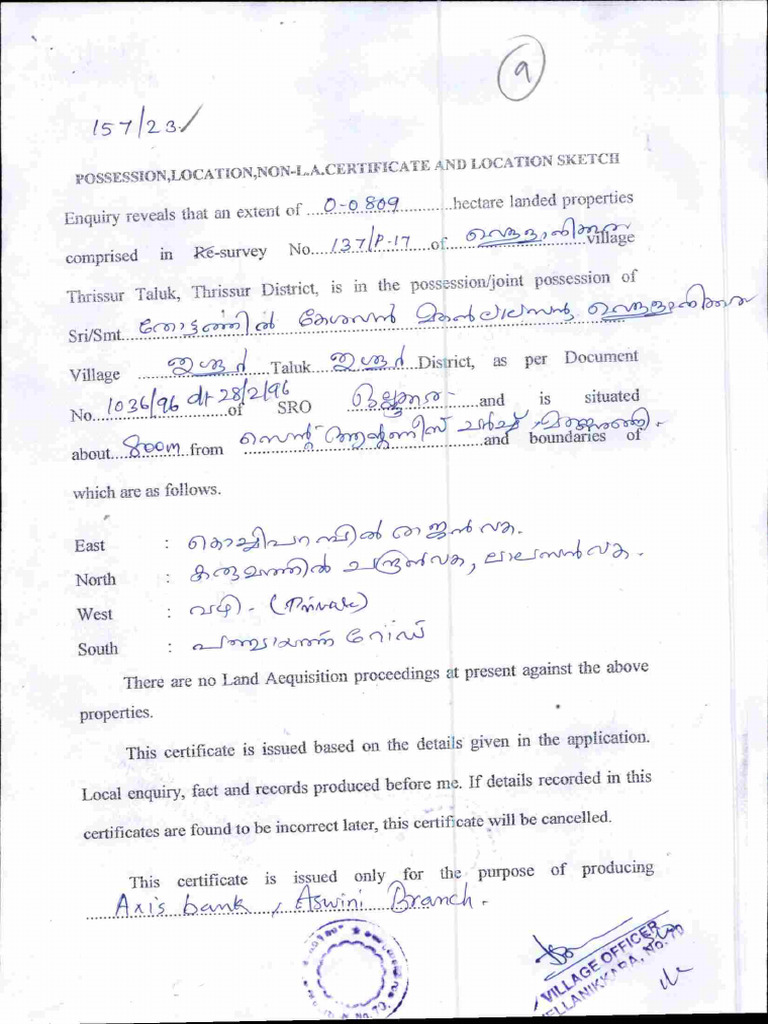 9
157/23
POSSESSION,LOCATION,NON-L.A.CERTIFICATE AND LOCATION SKETCH
Enquiry reveals that an extent of ...0-0809...hectare landed properties
comprised in Re-survey No...137/P-17...of വെള്ളാനിക്കര village
Thrissur Taluk, Thrissur District, is in the possession/joint possession of
Sri/Smt. തോട്ടത്തിൽ കേശവൻ മകൻ ലാലസൻ, വെള്ളാനിക്കര
Village തൃശൂർ Taluk തൃശൂർ District, as per Document
No. 1036/96 dt 28/2/96 of SRO ഒല്ലൂക്കര and is situated
about 800m from സെന്റ് ആന്റണീസ് ചർച്ച് and boundaries of
which are as follows.
East : രാജൻ വക.
North : ചന്ദ്രൻ വക, ലാലസൻ വക.
West : വഴി - (Private)
South : പഞ്ചായത്ത് റോഡ്
There are no Land Aequisition proceedings at present against the above
properties.
This certificate is issued based on the details given in the application.
Local enquiry, fact and records produced before me. If details recorded in this
certificates are found to be incorrect later, this certificate will be cancelled.
This certificate is issued only for the purpose of producing
Axis bank, Aswini Branch.
VILLAGE OFFICER
VELLANIKKARA, No. 70